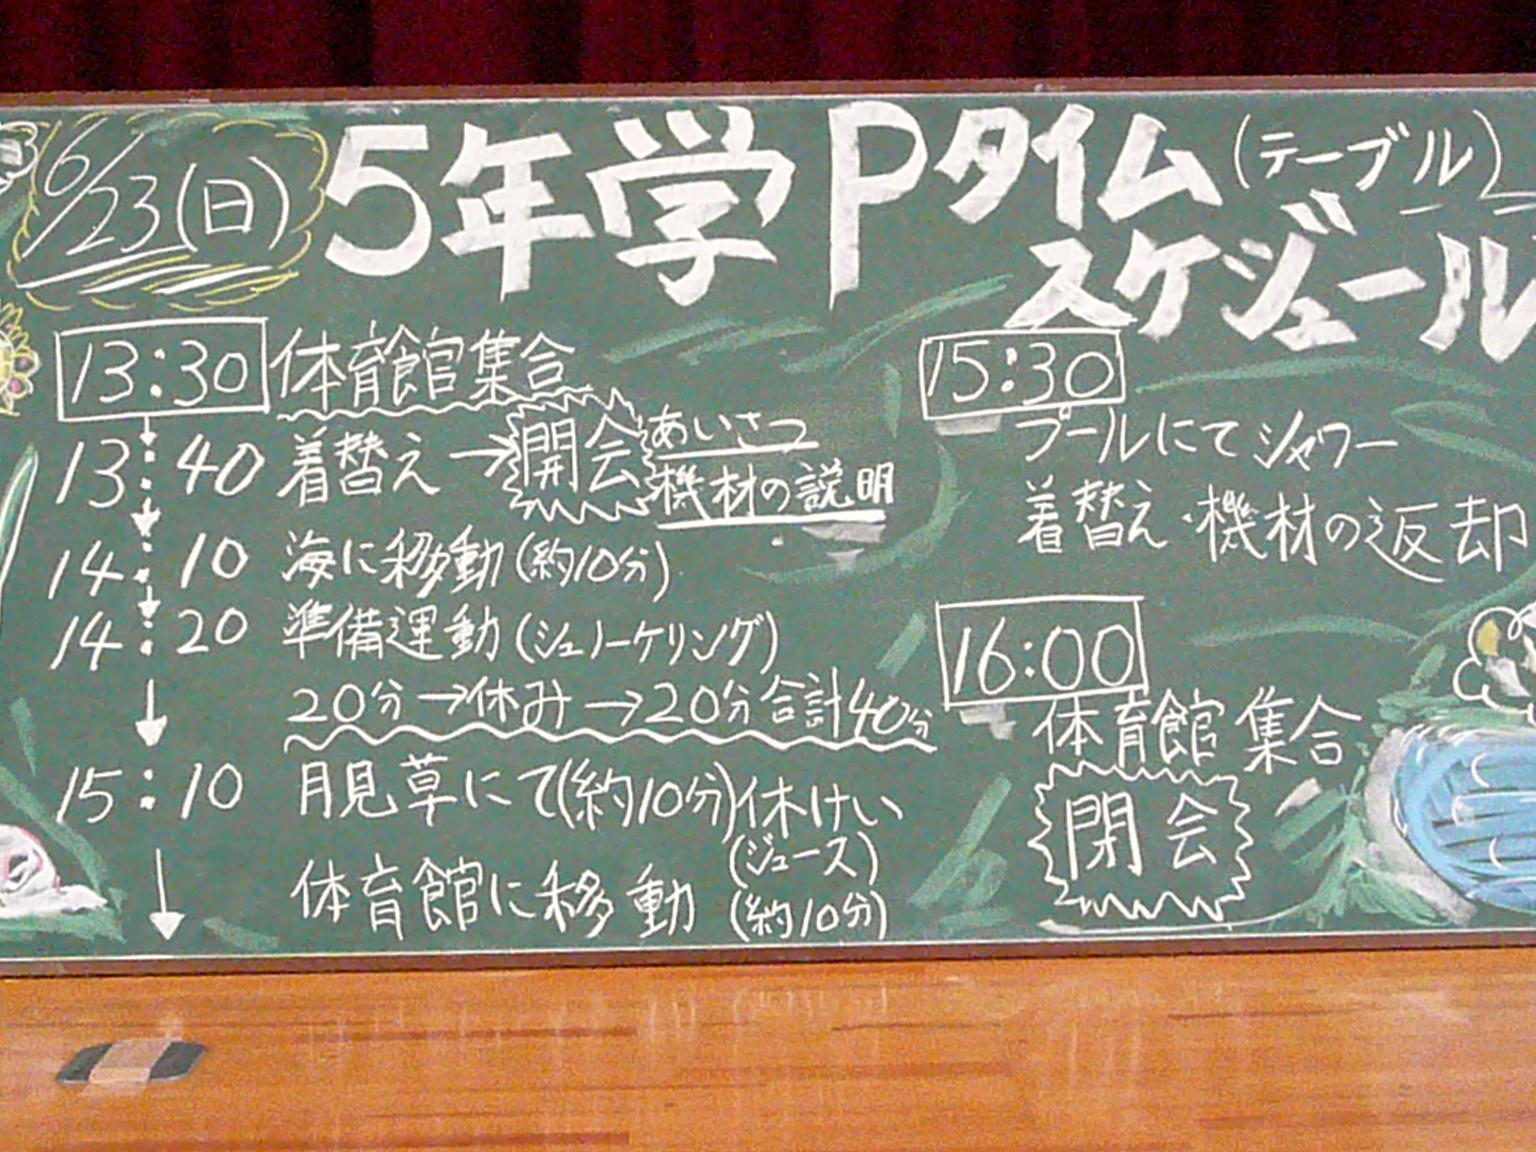 6/23(日) 5年学Pタイム(テーブル)
スケジュール
13:30 体育館集合
13:40 着替え→開会 あいさつ
機材の説明
14:10 海に移動(約10分)
14:20 準備運動(シュノーケリング)
20分→休み→20分 合計40分
15:10 月見草にて(約10分)休けい
(ジュース)
体育館に移動 (約10分)
15:30
プールにてシャワー
着替え・機材の返却
16:00
体育館集合
閉会